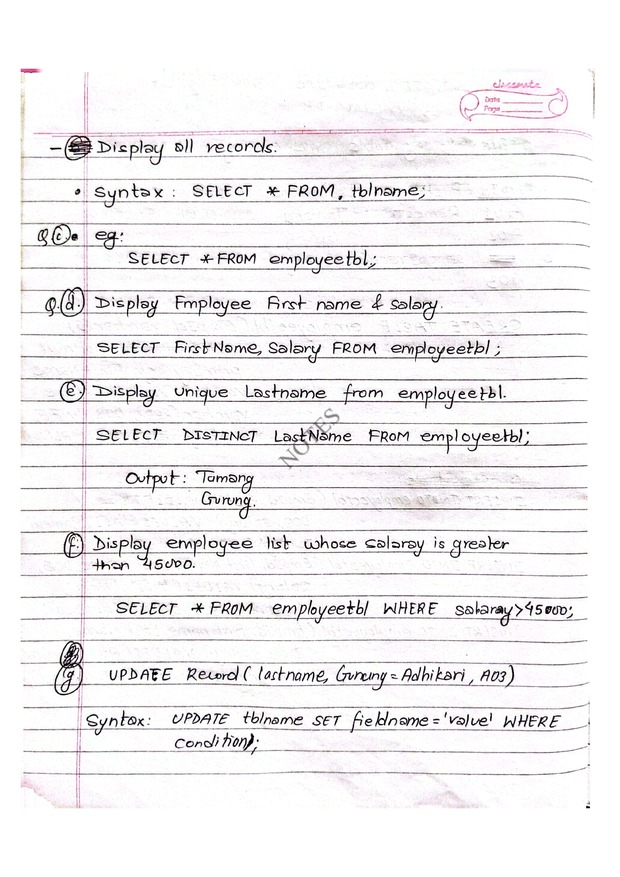 classmate
Date
Page
- Display all records.
• Syntax : SELECT * FROM, tblname;
Q (c). • eg:
SELECT * FROM employeetbl;
Q. (d.) Display Employee First name & salary.
SELECT FirstName, Salary FROM employeetbl ;
(e.) Display unique Lastname from employeetbl.
SELECT DISTINCT LastName FROM employeetbl;
NOTES
Output : Tamang
Gurung.
(f.) Display employee list whose salaray is greater
than 45000.
SELECT * FROM employeetbl WHERE salaray>45000;
(g) UPDATE Record ( lastname, Gurung = Adhikari , A03)
Syntax: UPDATE tblname SET fieldname = 'value' WHERE
condition;